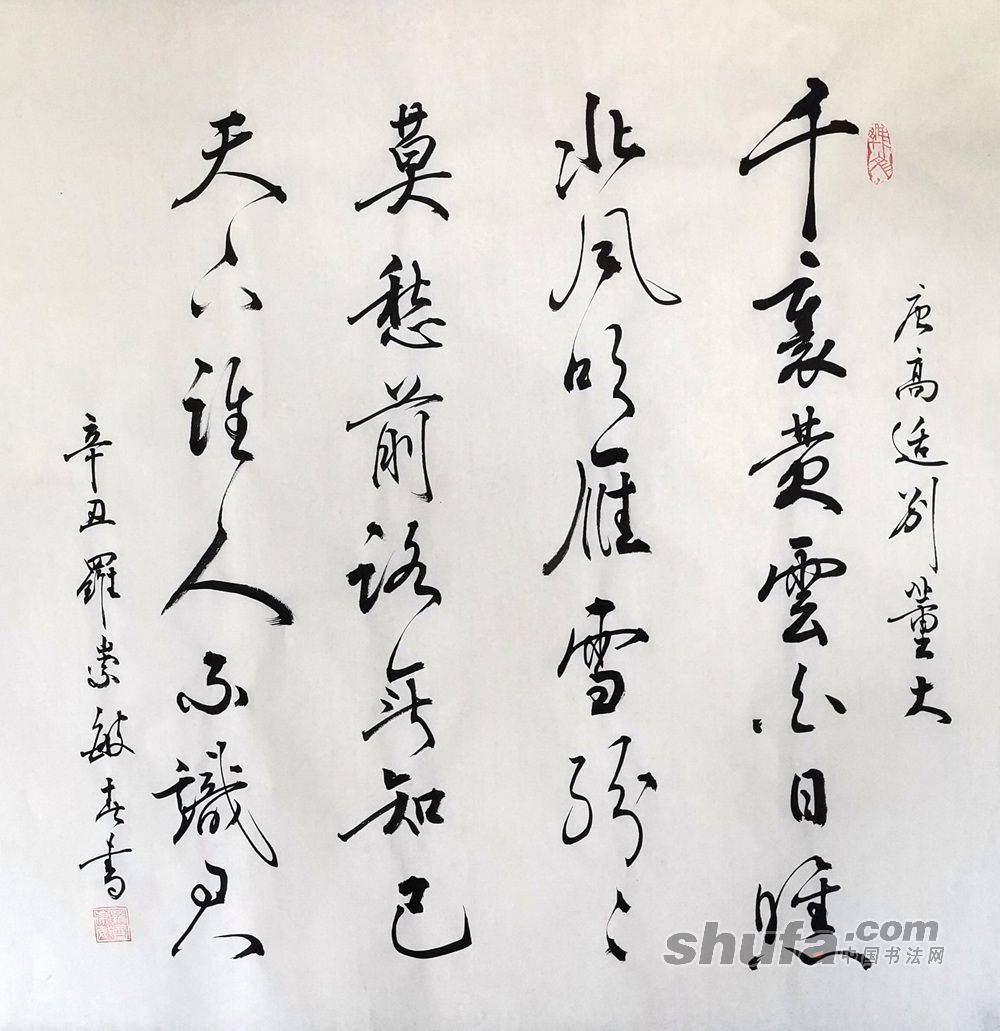 唐高适别董大
千裏黄雲白日曛
北风吹雁雪紛〻
莫愁前路無知己
天下誰人不識君
辛丑羅崇敏春書
shufa.com
中国书法网